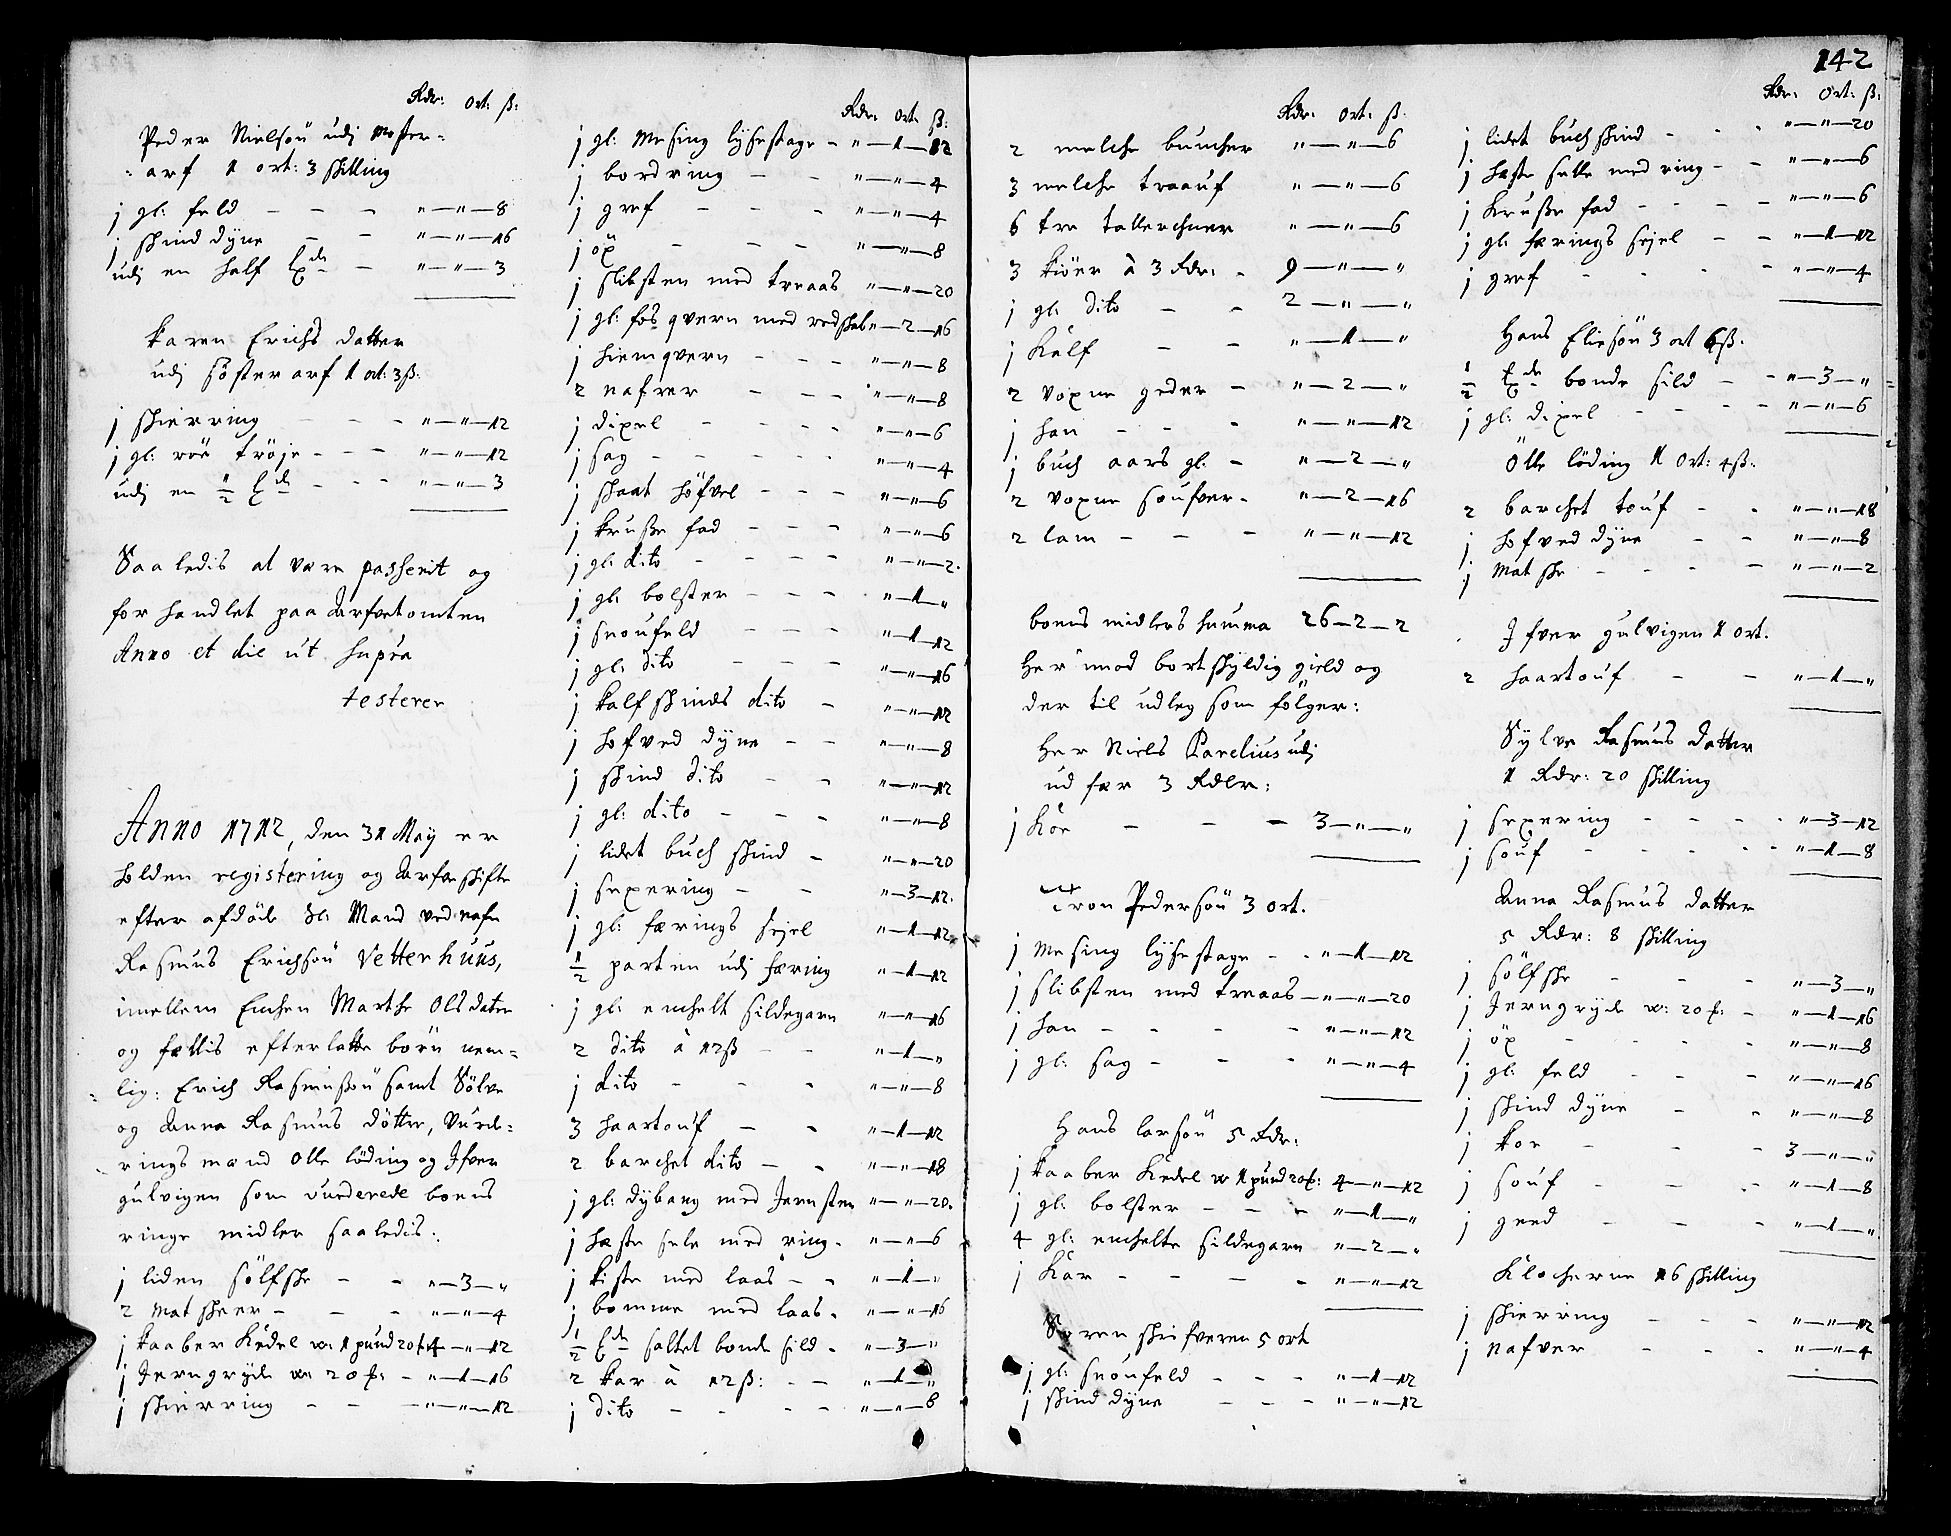 Rdr: ort: ß:
Peder Nielsøn udj moster-
arf 1 ort: 3 skilling
j gl: feld - - - "-"-8
j skind dyne - - "-"-16
udj en half - "-"-3
Karen Erichs datter
udj søster arf 1 ort: 3 ß:
j skierring - - - "-"-12
j gl: røe trøje - - - "-"-12
udj en 1/2 - - - "-"-3
Saaledis at være passerit og
forhandlet paa Arfvetomten
Anno et die ut supra
testerer
Anno 1712, den 31 May er
holden registering og Arfve skifte
efter afdøde Sl: Mand ved nafn
Rasmus Erichsøn Vetterhuus,
imellem Enchen Marthe Olsdater
og fællis efterlatte børn nem-
lig: Erich Rasmussøn samt Sølve
og Anna Rasmus døtter, Vurde-
ringsmænd Olle løding og Ifver
gulvigen som vurderede boens
ringe midler saaledis:
j liden sølfske - - "-3-"
2 matskeer - - - "-"-4
j kaaber Kedel w: 1 pund 20 4-"-12
j Jerngryde w: 20 - "-1-16
j skierring - - "-"-12
Rdr: ort: ß:
j gl: Mesing lysestage - "-1-12
j bordring - - "-"-4
j gref - - - "-"-4
j øx - - - "-"-8
j slibsten med traaas "-"-20
j gl: fos qvern med redskab "-2-16
j hiemqvern - - - "-"-8
2 nafrer - - - "-"-8
j dixel - - - "-"-6
j sag - - - - "-"-4
j skaat høfvel - - - "-"-6
j krusse fad - - - "-"-6
j gl: dito - - - "-"-2
j gl: bolster - - - "-1-"
j snoufeld - - - "-1-12
j gl: dito - - - "-"-16
j kalfskinds dito - "-"-12
j hofved dyne - - "-"-8
j skind dito - - "-"-12
j gl: dito - - - "-"-8
j lidet buch skind - "-"-20
j sexering - - "-3-12
j gl: færings sejel "-1-12
1/2 parten udj færing "-1-12
j gl: enchelt sildegarn "-"-16
2 dito à 12 ß - - "-1-"
j dito - - - "-"-8
3 haartouf - - "-1-12
2 barchet dito - - "-"-18
j gl: dybang med Jernsten "-"-20
j hæste sele med ring - "-"-6
j kiste med laas - - "-1-"
j bomme med laas - "-"-16
1/2 saltet bonde sild - "-3-"
2 kar à 12 ß: - - "-1-"
j dito - - - - "-"-8
142
Rdr: ort: ß:
2 melche buncher "-"-6
3 melche traauf "-"-6
6 tre tallerchner "-"-6
3 kiøer à 3 Rdr: - 9-"-"
j gl: dito - - 2-"-"
j Kalf - - "-1-"
2 voxne geder - "-2-"
j han - - - "-"-12
j buch aars gl: - "-2-"
2 voxne soufver - "-2-16
2 lam - - - "-"-12
boens midlers summa 26-2-2
Her imod bortskyldig gield og
der til udleg som følger:
Her Niels Parelius udj
ud fær 3 Rdlr:
j Koe - - - 3-"-"
Tron Pedersøn 3 ort.
j Mesing lysestage - - "-1-12
j slibsten med traaas - "-"-20
j han - - - - "-"-12
j gl: sag - - - "-"-4
Hans larsøn 5 Rdr:
j kaaber Kedel w 1 pund 20: 4-"-12
j gl: bolster - - - "-1-"
4 gl: enchelte sildegarn "-2-"
j Kar - - - - "-"-12
Søren skrifveren 5 ort
j gl: snoufeld - - - "-1-12
j skind dyne - - - "-"-12
Rdr: ort: ß:
j lidet buch skind - - - "-"-20
j hæste selle med ring - - "-"-6
j Krusse fad - - - - "-"-6
j gl: færings sejel - - "-1-12
j gref - - - - "-"-4
Hans Eliesøn 3 ort 6 ß.
1/2 bonde sild - - "-3-"
j gl: dixel - - - - "-"-6
Olle løding 1 ort: 4 ß:
2 barchet touf - - "-"-18
j hofved dyne - - "-"-8
j Mat ske - - - - "-"-2
Ifver gulvigen 1 ort.
2 haartouf - - "-1-"
Sylve Rasmus datter
1 Rdr: 20 skilling
j sexering - - - - "-3-12
j souf - - - - - "-1-8
Anna Rasmus datter
5 Rdr: 8 skilling
j sølfske - - - "-3-"
j Jerngryde w: 20 - "-1-16
j øx - - - - "-"-8
j gl: feld - - - "-"-16
j skind dyne - - "-"-8
j koe - - - 3-"-"
j souf - - - "-1-8
j geed - - - "-1-"
Klocherne 16 skilling
j skierring - - - "-"-12
j nafver - - - "-"-4